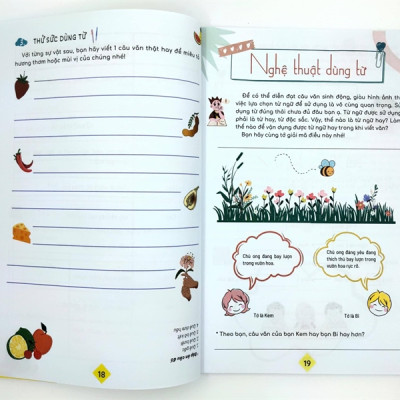 THỬ SỨC DÙNG TỪ
Với từng sự vật sau, bạn hãy viết 1 câu văn thật hay để miêu tả
hương thơm hoặc mùi vị của chúng nhé!
18
Nghệ thuật dùng từ
Để có thể diễn đạt câu văn sinh động, giàu hình ảnh th
việc lựa chọn từ ngữ để sử dụng là vô cùng quan trọng. Sử
dụng từ đúng thôi chưa đủ đâu bạn ạ. Từ ngữ được sử dụng
phải là từ hay, từ đặc sắc. Vậy, thế nào là từ ngữ hay? Làm
thế nào để vận dụng được từ ngữ hay trong khi viết văn?
Bạn hãy cùng tớ giải mã điều này nhé!
Chú ong đang bay lượn
trong vườn hoa.
Chú ong đang yêu đang
thích thú bay lượn trong
vườn hoa rực rỡ.
Tớ là Kem
Tớ là Bi
* Theo bạn, câu văn của bạn Kem hay bạn Bi hay hơn?
19